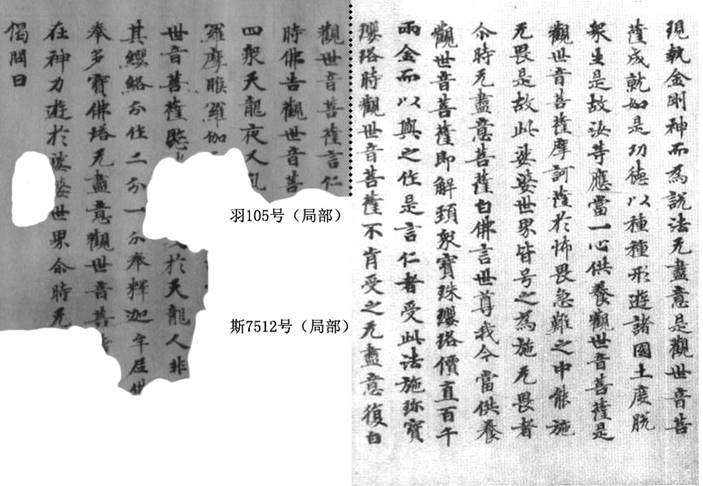 現執金剛神而為說法无盡意是觀世音菩
薩成就如是功德以種種形遊諸國土度脫
衆生是故汝等應當一心供養觀世音菩薩是
觀世音菩薩摩訶薩於怖畏急難之中能施
无畏是故此娑婆世界皆号之為施无畏者
尒時无盡意菩薩白佛言世尊我今當供養
觀世音菩薩即解頚衆寶珠瓔珞價直百千
兩金而以與之作是言仁者受此法施珎寶
瓔珞時觀世音菩薩不肯受之无盡意復白
觀世音菩薩言仁
時佛告觀世音菩
四衆天龍夜叉乹
羅摩睺羅伽
世音菩薩愍 於天龍人非
其瓔珞分作二分一分奉釋迦牟尼
奉多寶佛塔无盡意觀世音菩
在神力遊於娑婆世界尒時无
偈問曰
羽105号（局部）
斯7512号（局部）